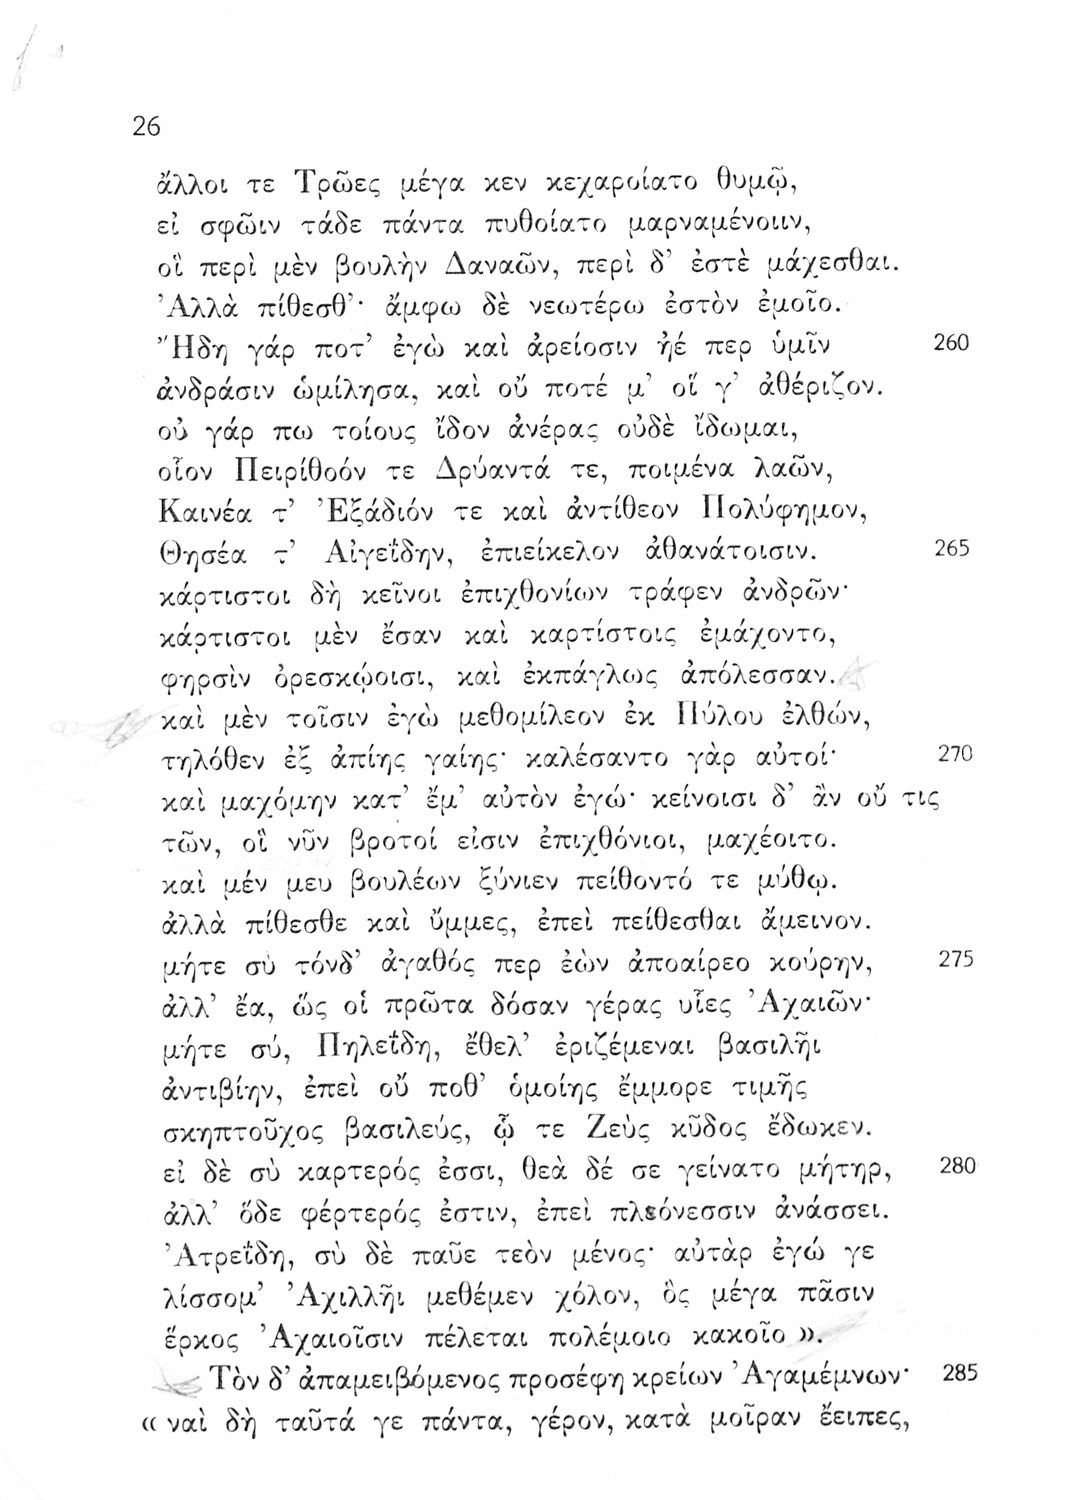 26
ἄλλοι τε Τρῶες μέγα κεν κεχαροίατο θυμῷ,
εἰ σφῶιν τάδε πάντα πυθοίατο μαρναμένοιιν,
οἳ περὶ μὲν βουλὴν Δαναῶν, περὶ δ’ ἐστὲ μάχεσθαι.
’Αλλὰ πίθεσθ’· ἄμφω δὲ νεωτέρω ἐστὸν ἐμοῖο.
῎Ηδη γάρ ποτ’ ἐγὼ καὶ ἀρείοσιν ἠέ περ ὑμῖν 260
ἀνδράσιν ὡμίλησα, καὶ οὔ ποτέ μ’ οἵ γ’ ἀθέριζον.
οὐ γάρ πω τοίους ἴδον ἀνέρας οὐδὲ ἴδωμαι,
οἷον Πειρίθοόν τε Δρύαντά τε, ποιμένα λαῶν,
Καινέα τ’ ’Εξάδιόν τε καὶ ἀντίθεον Πολύφημον,
Θησέα τ’ Αἰγεΐδην, ἐπιείκελον ἀθανάτοισιν. 265
κάρτιστοι δὴ κεῖνοι ἐπιχθονίων τράφεν ἀνδρῶν·
κάρτιστοι μὲν ἔσαν καὶ καρτίστοις ἐμάχοντο,
φηρσὶν ὀρεσκῴοισι, καὶ ἐκπάγλως ἀπόλεσσαν.
καὶ μὲν τοῖσιν ἐγὼ μεθομίλεον ἐκ Πύλου ἐλθών,
τηλόθεν ἐξ ἀπίης γαίης· καλέσαντο γὰρ αὐτοί· 270
καὶ μαχόμην κατ’ ἔμ’ αὐτὸν ἐγώ· κείνοισι δ’ ἂν οὔ τις
τῶν, οἳ νῦν βροτοί εἰσιν ἐπιχθόνιοι, μαχέοιτο.
καὶ μέν μευ βουλέων ξύνιεν πείθοντό τε μύθῳ.
ἀλλὰ πίθεσθε καὶ ὔμμες, ἐπεὶ πείθεσθαι ἄμεινον.
μήτε σὺ τόνδ’ ἀγαθός περ ἐὼν ἀποαίρεο κούρην, 275
ἀλλ’ ἔα, ὥς οἱ πρῶτα δόσαν γέρας υἷες ’Αχαιῶν·
μήτε σύ, Πηλεΐδη, ἔθελ’ ἐριζέμεναι βασιλῆι
ἀντιβίην, ἐπεὶ οὔ ποθ’ ὁμοίης ἔμμορε τιμῆς
σκηπτοῦχος βασιλεύς, ᾧ τε Ζεὺς κῦδος ἔδωκεν.
εἰ δὲ σὺ καρτερός ἐσσι, θεὰ δέ σε γείνατο μήτηρ, 280
ἀλλ’ ὅδε φέρτερός ἐστιν, ἐπεὶ πλεόνεσσιν ἀνάσσει.
’Ατρεΐδη, σὺ δὲ παῦε τεὸν μένος· αὐτὰρ ἐγώ γε
λίσσομ’ ’Αχιλλῆι μεθέμεν χόλον, ὃς μέγα πᾶσιν
ἕρκος ’Αχαιοῖσιν πέλεται πολέμοιο κακοῖο ».
Τὸν δ’ ἀπαμειβόμενος προσέφη κρείων ’Αγαμέμνων· 285
« ναὶ δὴ ταῦτά γε πάντα, γέρον, κατὰ μοῖραν ἔειπες,